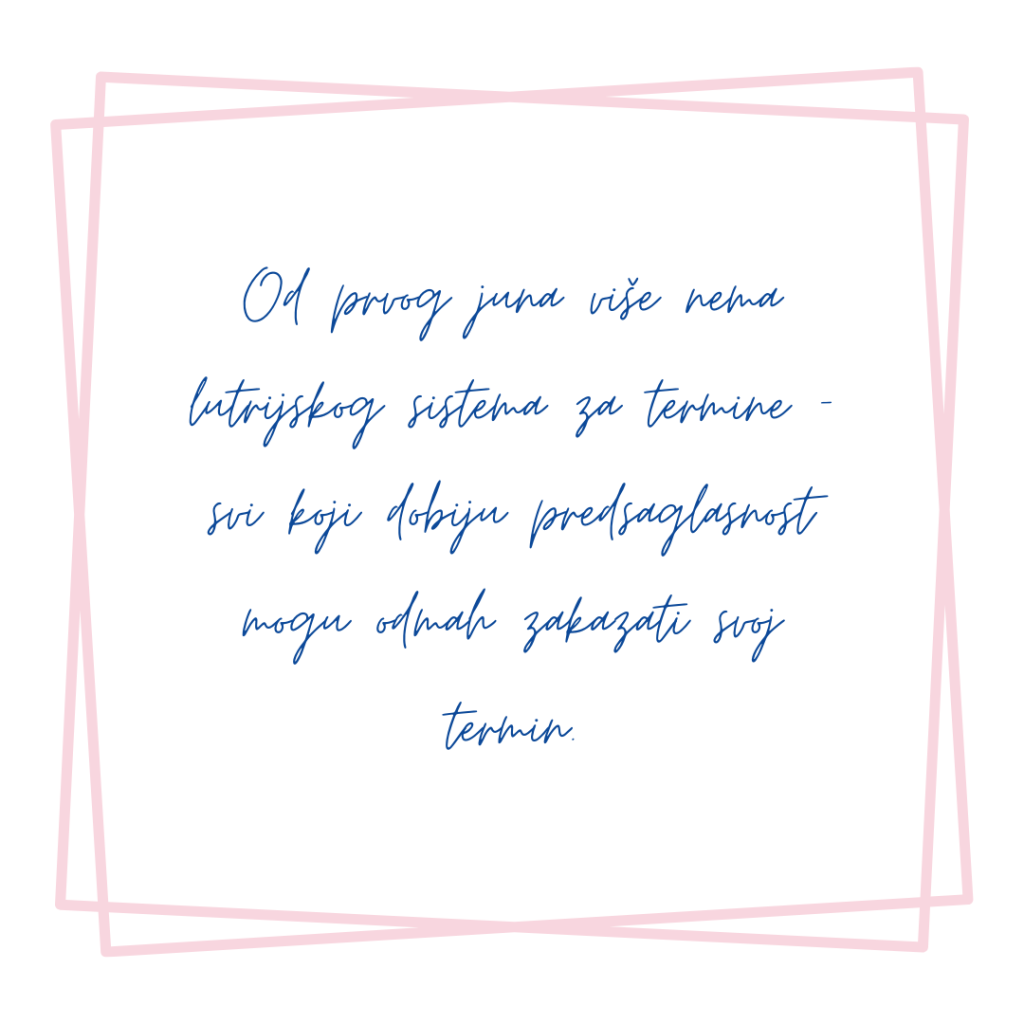 Od prvog juna više nema
lutrijskog sistema za termine -
svi koji dobiju predsaglasnost
mogu odmah zakazati svoj
termin.